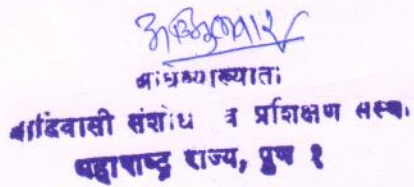 अधिव्याख्याता
आदिवासी संशोधन व प्रशिक्षण संस्था
महाराष्ट्र राज्य, पुणे १